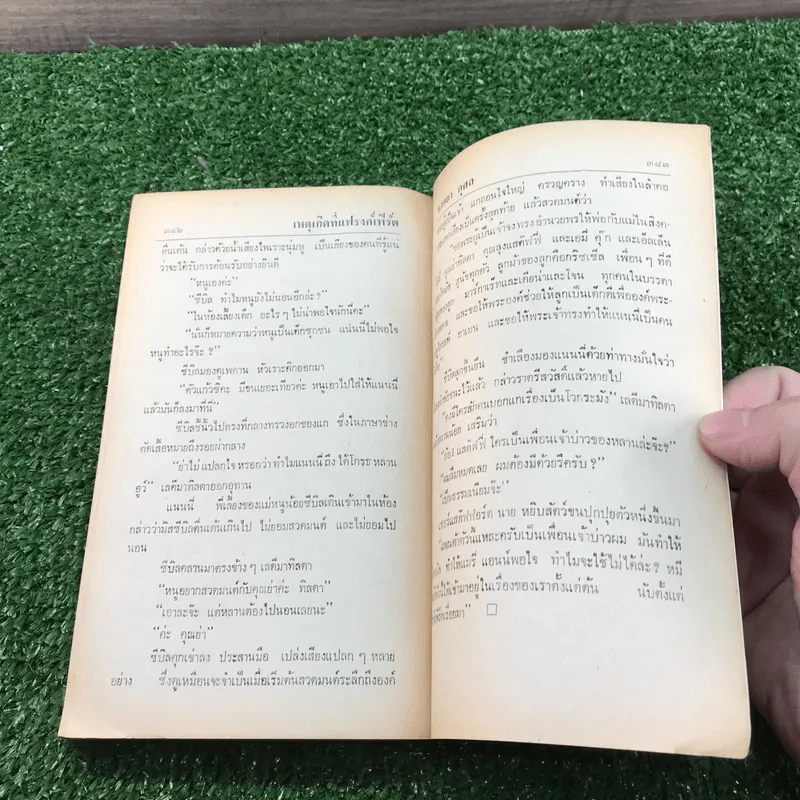 ๓๔๒ เหตุเกิดที่แฟรงค์เฟิร์ต
ตื่นเต้น กล่าวด้วยน้ำเสียงไพเราะนุ่มหู เป็นเสียงของคนที่รู้แน่
ว่าจะได้รับการต้อนรับอย่างยินดี
“หนูเองค่ะ”
“ซีบิล ทำไมหนูยังไม่นอนอีกล่ะ?”
“ในห้องเลี้ยงเด็ก อะไร ๆ ไม่น่าพอใจนักนี่คะ”
“นั่นก็หมายความว่าหนูเป็นเด็กซุกซน แน่นนี่ไม่พอใจ
หนูทำอะไรจ๊ะ ?”
ซีบิลมองดูเพดาน หัวเราะคิกออกมา
“ตัวแก้วซิคะ มีขนเยอะเทียวค่ะ หนูเอาไปใส่ให้แนนนี่
แล้วมันก็ลงมาที่นี่”
ซีบิลชี้นิ้วไปตรงที่กลางทรวงอกของแก ซึ่งในภาษาช่าง
ตัดเสื้อหมายถึงรอยผ่ากลาง
“ย่าไม่แปลกใจ หรอกว่า ทำไมแนนนี่ ถึงได้โกรธ หลาน
อูว์” เลดีมาทิลดาออกอุทาน
แนนนี่ พี่เลี้ยงของแม่หนูน้อยซีบิลเดินเข้ามาในห้อง
กล่าวว่ามิสซีบิลตื่นเต้นเกินไป ไม่ยอมสวดมนต์ และไม่ยอมไป
นอน
ซีบิลคลานมาตรงข้าง ๆ เลดีมาทิลดา
“หนูอยากสวดมนต์กับคุณย่าค่ะ ทิลดา”
“เอาละจ๊ะ แต่หลานต้องไปนอนเลยนะ”
“ค่ะ คุณย่า”
ซีบิลคุกเข่าลง ประสานมือ เปล่งเสียงแปลก ๆ หลาย
อย่าง ซึ่งดูเหมือนจะจำเป็นเมื่อเริ่มต้นสวดมนต์ระลึกถึงองค์
๓๔๓
เป็นเจ้า แกถอนใจใหญ่ ครวญคราง ทำเสียงในลำคอ
เสียงเป็นครั้งสุดท้าย แล้วสวดมนต์ว่า
“ขอพระผู้เป็นเจ้าจงทรง อำนวยพรให้พ่อกับแม่ในสิงค-
คุณย่ามาทิลดา คุณลุงแสตัฟฟี่ และเอมี่ คุ๊ก และเอลเล็น
สุนัขทุกตัว ลูกม้าของลูกคือกริซเซิล เพื่อน ๆ ที่ดี
มาร์กาเร็ทและเดียน่าและโจน ทุกคนในบรรดา
และขอให้พระองค์ช่วยให้ลูกเป็นเด็กดีเพื่อองค์พระ-
อาเมน และขอให้พระเจ้าทรงทำให้แนนนี่เป็นคน
ซีบิลลุกขึ้นยืน ชำเลืองมองแนนนี่ด้วยท่าทางมั่นใจว่า
ชนะไว้แล้ว กล่าวราตรีสวัสดิ์แล้วหายไป
“คงมีใครสักคนบอกแกเรื่องเป็นโวกระมัง” เลดีมาทิลดา
เสริมว่า
แสตัฟฟี่ ใครเป็นเพื่อนเจ้าบ่าวของหลานล่ะจ๊ะ?”
หมดเลย ผมต้องมีด้วยรึครับ ?”
ธรรมเนียมจ๊ะ”
เซอร์แสตัฟฟอร์ด นาย หยิบสัตว์ขนปุกปุยตัวหนึ่งขึ้นมา
ตัวนี้แหละครับเป็นเพื่อนเจ้าบ่าวผม มันทำให้
ทำให้แมรี่ แอนน์พอใจ ทำไมจะใช้ไม่ได้ล่ะ? หมี
ให้เข้ามาอยู่ในเรื่องของเราตั้งแต่ต้น นับตั้งแต่
เรื่อยมา” □